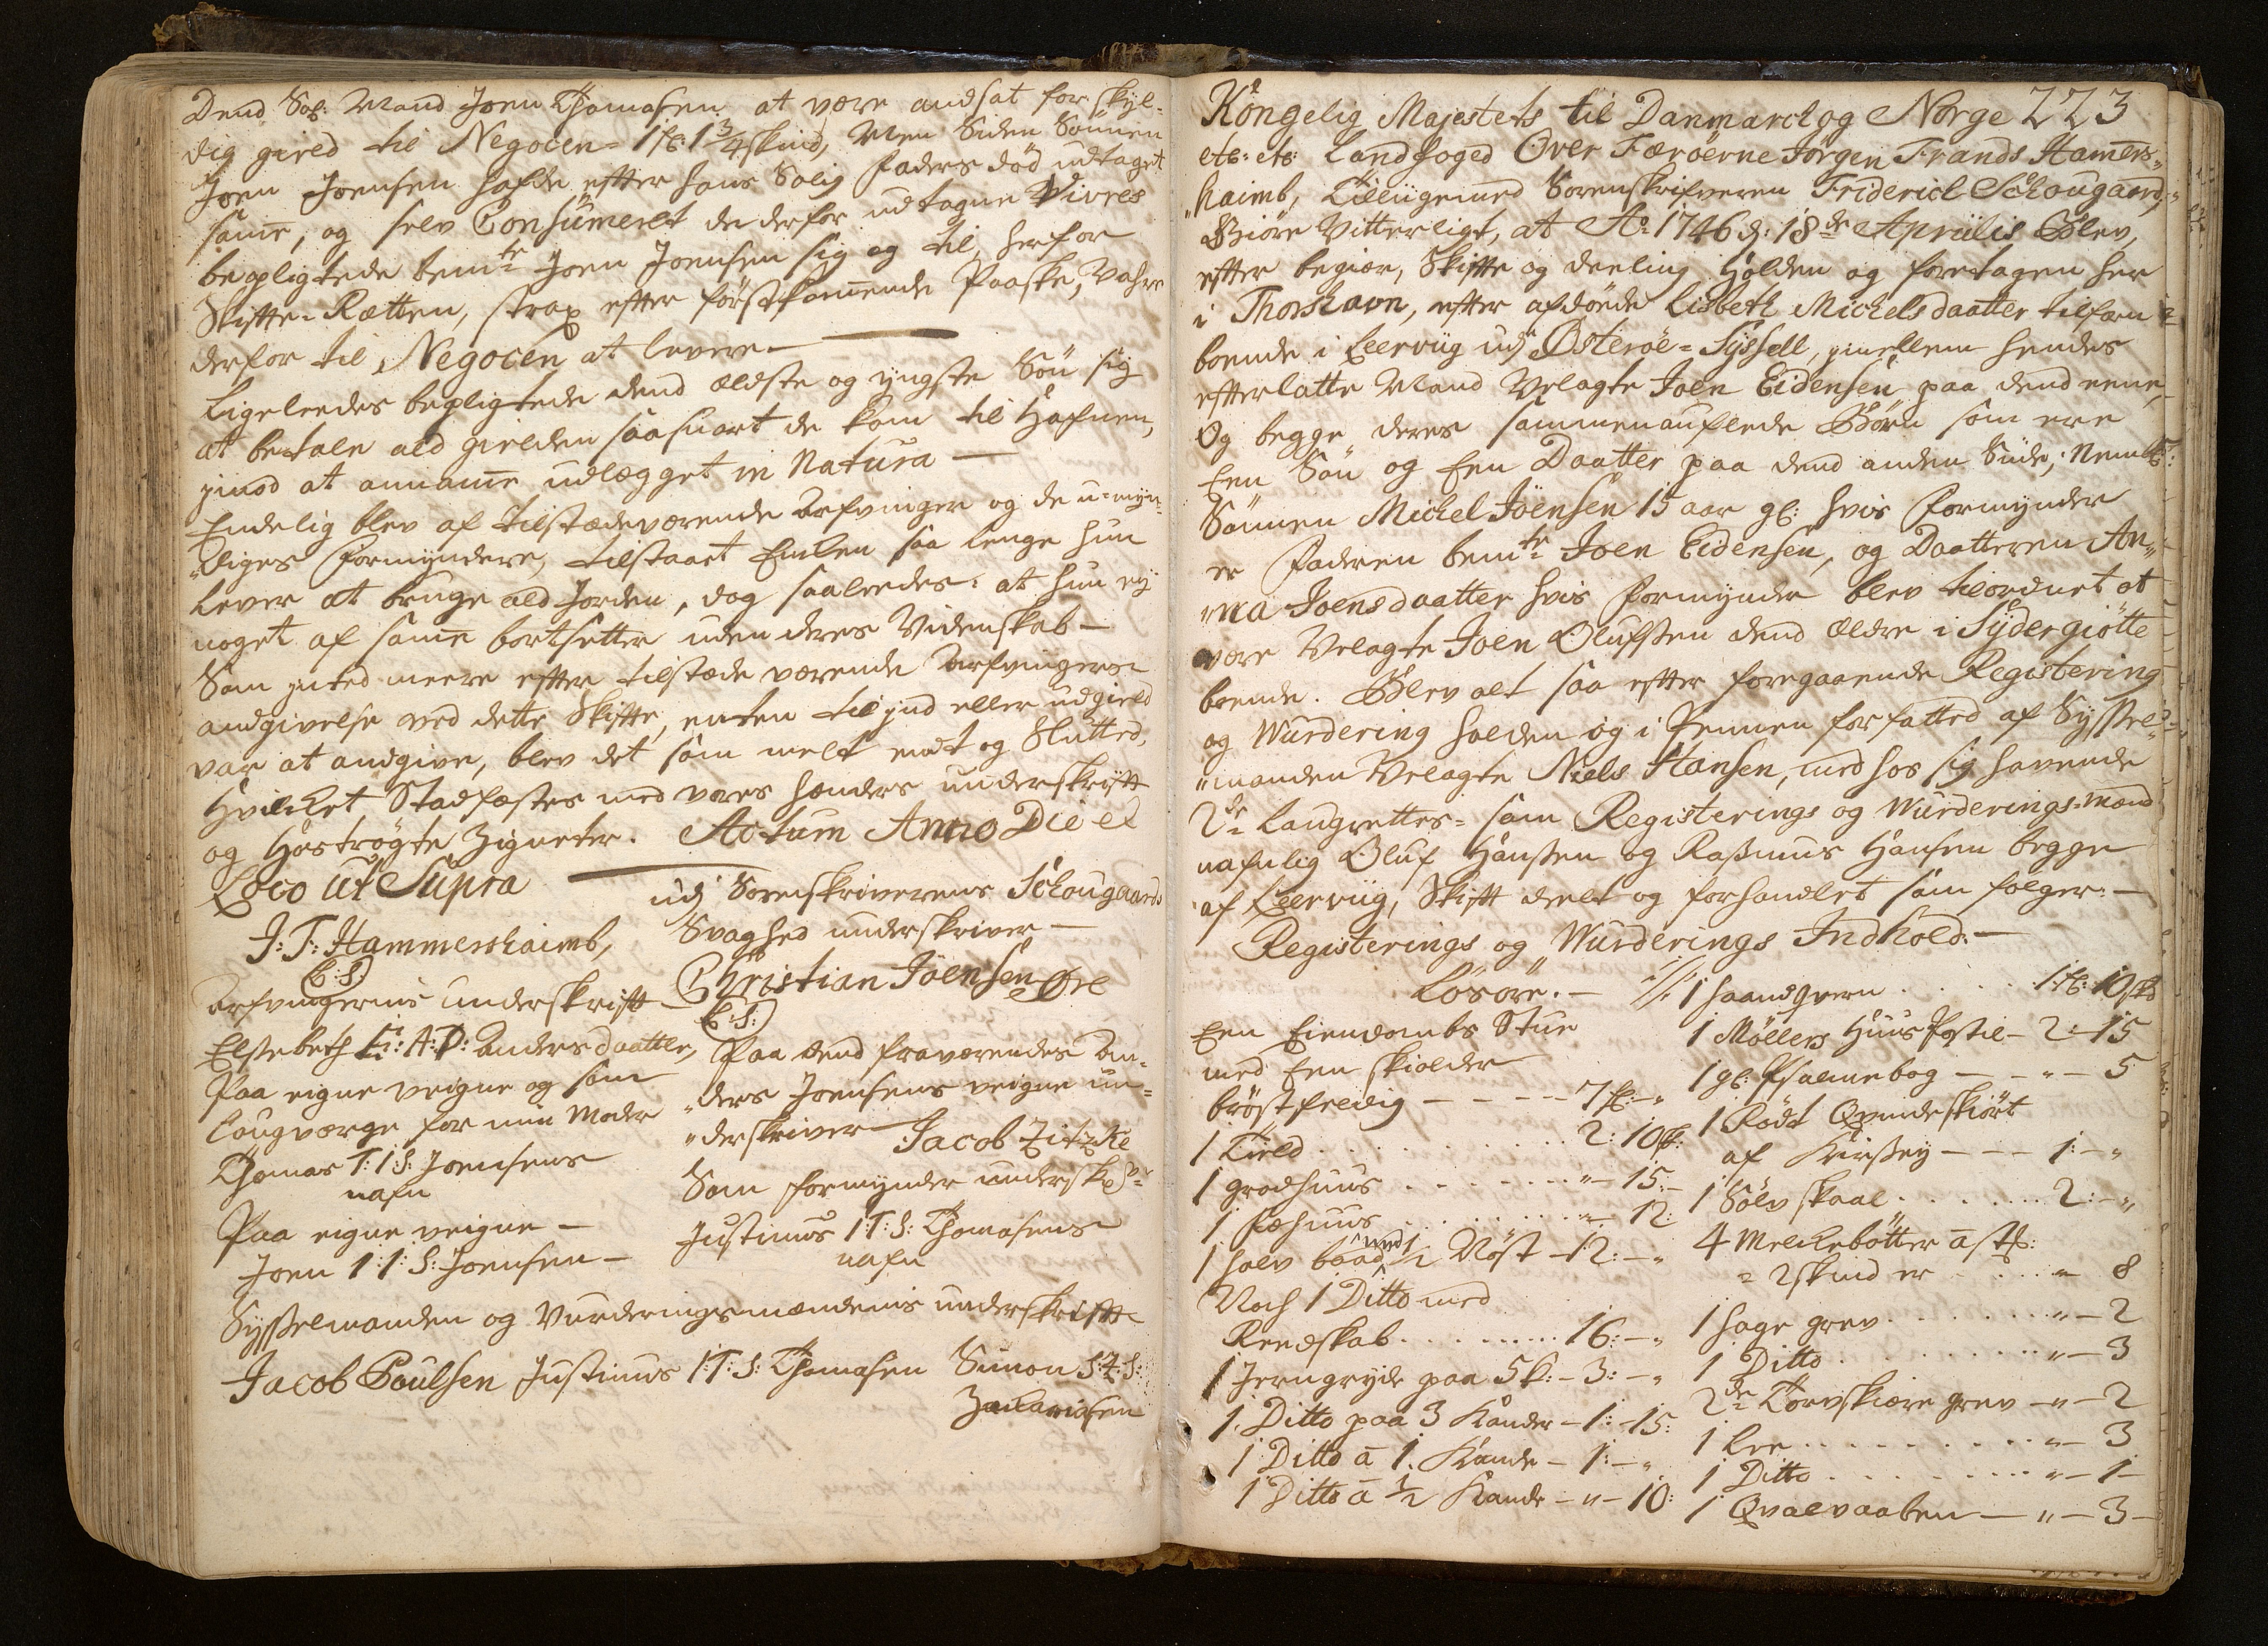 Dend Sal: Mand Joen Thomasen at være andsat for skyl-
dig gield til Negocen = 1 fl: 1 3/4 skind, Men Siden Sönnen
Joen Joensen hafde efter hans Salig Faders död udtaget
samme, og selv Consumeret de derfor udtagne Vivres
beepligtede bemte Joen Joensen sig og til, herfor
Skifte-Retten, strax efter förstkommende Paaske, Vahre
derfor til Negocen at levere
Ligeleedes bepligtede dend ældste og yngste Sön sig
at betale ald gielden saasnart de kom til Hafnen,
jmod at annamme udlægget in Natura —
Endelig blev af tilstædeværende Arfvinger og de u-myn-
"diges Formyndere, tilstaaet Enken saa lenge hun
lever at bruge ald Jorden, dog saaleedes: at hun ej
noget af samme bortsetter uden deres Videnskab —
Som inted meere efter tilstæde værende Arfvingers
andgivelse ved dette Skifte, enten til jnd eller udgield
var at andgive, blev det som melt endt og Slutted,
Hvilcket Stadfæstes med vores hænders underskrift
og hoströgte Zigneter. Actum Anno Die et
Loco ut Supra
J: F: Hammershaimb,
(L:S)
Arfvingernis underskrift
Elsebeth E: A: D: Andersdaatter,
Paa eigne veigne og som
Laugværge for min Moder
Thomas T: I: S: Joensens
nafn
Paa eigne veigne —
Joen I: I: S: Joensen —
udj Sorenskriverens Schougaards
Svaghed underskriver —
Christian Joensen Öre
(L:S:)
Paa dend fraværendes An-
"ders Joensens veigne un-
"derskriver Jacob Zitzke
Som formynder undersk:
Justinus I: T: S: Thomasens
nafn
Sysselmanden og Vurderingsmændenis underskrift
Jacob Poulsen Justinus I: T: S: Thomasen Simon S: Z: S:
Zachariasen
Kongelig Majestets til Danmarck og Norge 223
etc: etc: Landfoged Over Færöerne Jörgen Frands Hamers-
"haimb, Tilliigemed Sorenskrifveren Friderich Schougaard,
Giöre Vitterligt, at Ao 1746 d: 18de Aprilis Blev,
efter begiær, Skifte og deeling holden og foretagen her
i Thorshavn, efter afdöede Lisbeth Michelsdaatter tilforn
boende i Leervig udj Österöe-Syssell, jmellem hendes
efterlatte Mand Velagte Joen Eidensen paa dend eene,
Og begge deres sammenauflede Börn som ere
Een Sön og Een Daatter paa dend anden Side, Nembl:
Sönnen Michel Joensen 15 aar gl: hvis Formynder
er Faderen bemte Joen Eidensen, og Daatteren An-
"na Joensdaatter hvis Formynder blev tilordnet at
være Velagte Joen Olufsen dend Ældre i Sydergiötte
boende. Blev alt saa efter foregaaende Registering
og Wurdering holden og i Pennen forfatted af Syssel-
"manden Velagte Niels Hansen, med hos sig havende
2de Laugrettes- som Registerings og Wurderings-Mænd
nafnlig Oluf Hansen og Rasmus Hansen begge
af Leervig, Skift deelt og forhandlet som fölger: —
Registerings og Wurderings Indhold: —
Lösöre. —
Een Eiendombs Stue
med Een skiolder
bröstfredig — — — — 7 fl: — "
1 Kield . . . . . . 2: 10 sk:
1 grodhuus . . . . . " — 15: —
1 Fæhuus . . . . . " — 12:
1 halv baad med 1/2 Nöst — 12: — "
Noch 1 Ditto med
Reedskab . . . . . 16: — "
1 Jerngryde paa 5 k: — 3: — "
1 Ditto paa 3 Kander — 1: — 15:
1 Ditto a 1. Kande — 1: — "
1 Ditto a 1/2 Kande — " — 10:
1 haandqvern . . . . . 1 fl: 10 sk
1 Möllers Huus Postil — 2: — 15
1 gl: Psalmebog — — " — 5
1 Rödt Qvindeskiört
af Kirssey — — — 1: — "
1 Sölv skaal . . . . . 2: — "
4 Melckebötter a st:
2 skind er . . . . " — 8
1 hage grev . . . . . " — 2
1 Ditto . . . . . . " — 3
2de Torvskiære grev — " — 2
1 Lee . . . . . . " — 3
1 Ditto . . . . . . " — 1 —
1 Qvalvaaben — " — 3 —